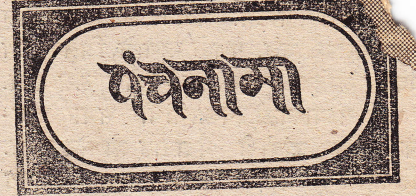 पंचनामा